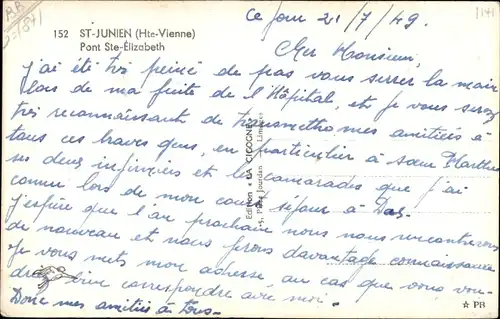 P.B.
1141
152 ST-JUNIEN (Hte-Vienne)
Pont Ste-Élizabeth
Ce jour 21/7/49
Cher Monsieur,
J'ai été très peiné de pas vous serrer la main
lors de ma fuite de l'Hôpital, et je vous serez
très reconnaissant de transmettre mes amitiés à
tous ces braves gens, en particulier à sœur Marthe
ses deux infirmiers et les camarades que j'ai
connu lors de mon court séjour à
J'espère que l'an prochaine nous nous rencontrerons
de nouveau et nous ferons davantage connaissance
Je vous mets mon adresse, au cas que vous vou-
drez bien correspondre avec moi.
Donc mes amitiés à tous.
Édition « LA CIGOGNE »
5, Place Jourdan - Limoges
★ PB